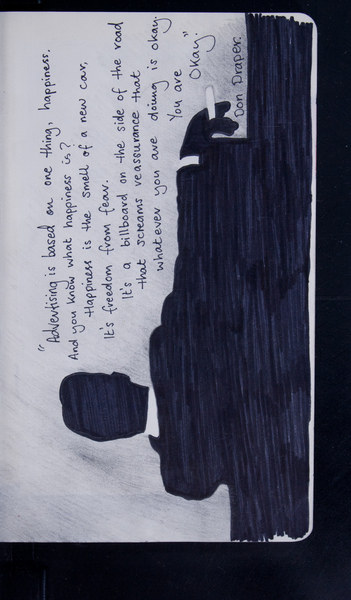 "Advertising is based on one thing, happiness.
And you know what happiness is?
Happiness is the smell of a new car,
It's freedom from fear.
It's a billboard on the side of the road
that screams reassurance that
whatever you are doing is okay.
You are
Okay."
Don Draper.